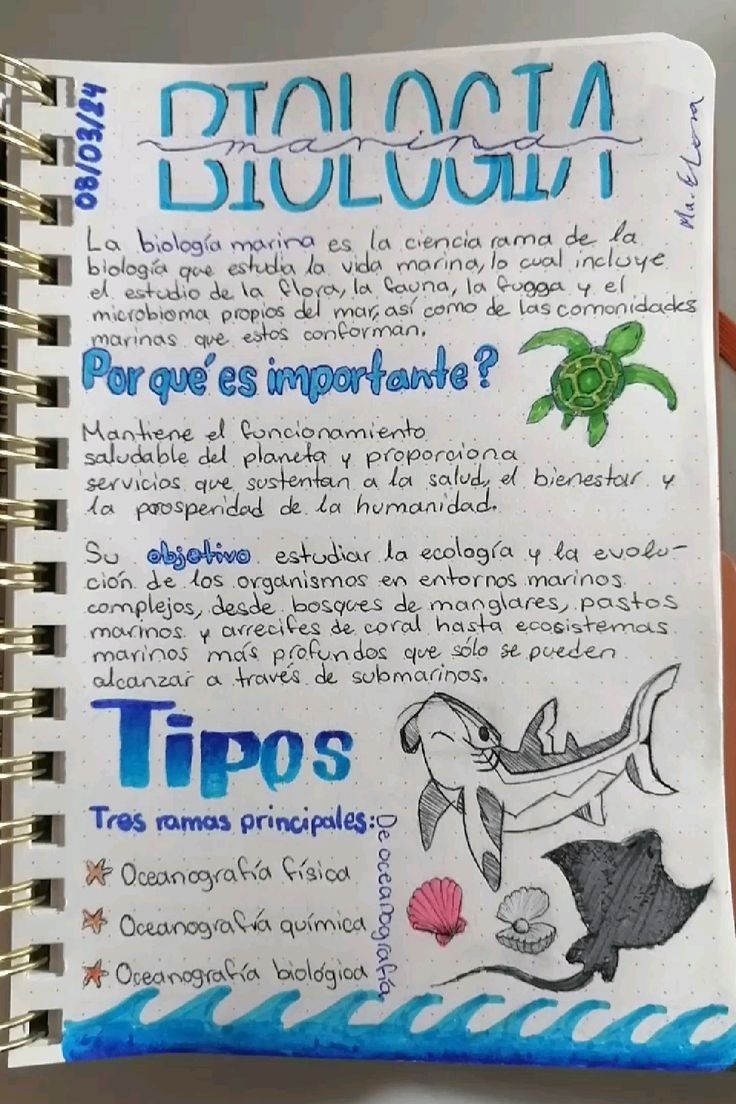 08/03/24
BIOLOGIA
marina
Ma. E Lora
La biología marina es la ciencia rama de la
biología que estudia la vida marina, lo cual incluye
el estudio de la flora, la fauna, la fugga y el
microbioma propios del mar, así como de las comonidades
marinas que estos conforman.
Por qué es importante?
Mantiene el funcionamiento
saludable del planeta y proporciona
servicios que sustentan a la salud, el bienestar y
la porosperidad de la humanidad.
Su objetivo estudiar la ecología y la evolu-
ción de los organismos en entornos marinos
complejos, desde bosques de manglares, pastos
marinos y arrecifes de coral hasta ecosistemas
marinos más profundos que sólo se pueden
alcanzar a través de submarinos.
Tipos
Tres ramas principales:
De oceanografía
Oceanografía física
Oceanografía química
Oceanografía biológica